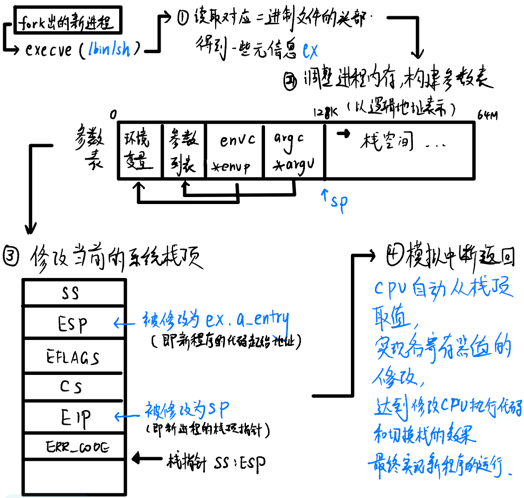 fork出的新进程
execve(/bin/sh)
① 读取对应二进制文件的头部.
得到一些元信息ex
② 调整进程内存,构建参数表
(以逻辑地址表示)
0
128K
64M
参数表
环境变量
参数列表
envc
*envp
argc
*argv
→ 栈空间 ...
↑sp
③ 修改当前的系统栈顶
SS
ESP
EFLAGS
CS
EIP
ERR_CODE
被修改为ex.a_entry
(即新程序的代码起始地址)
被修改为SP
(即新进程的栈顶指针)
栈指针 SS:ESP
④ 模拟中断返回
CPU自动从栈顶
取值,
实现各寄存器值的
修改,
达到修改CPU执行代码
和切换栈的效果
最终实现新程序的运行.